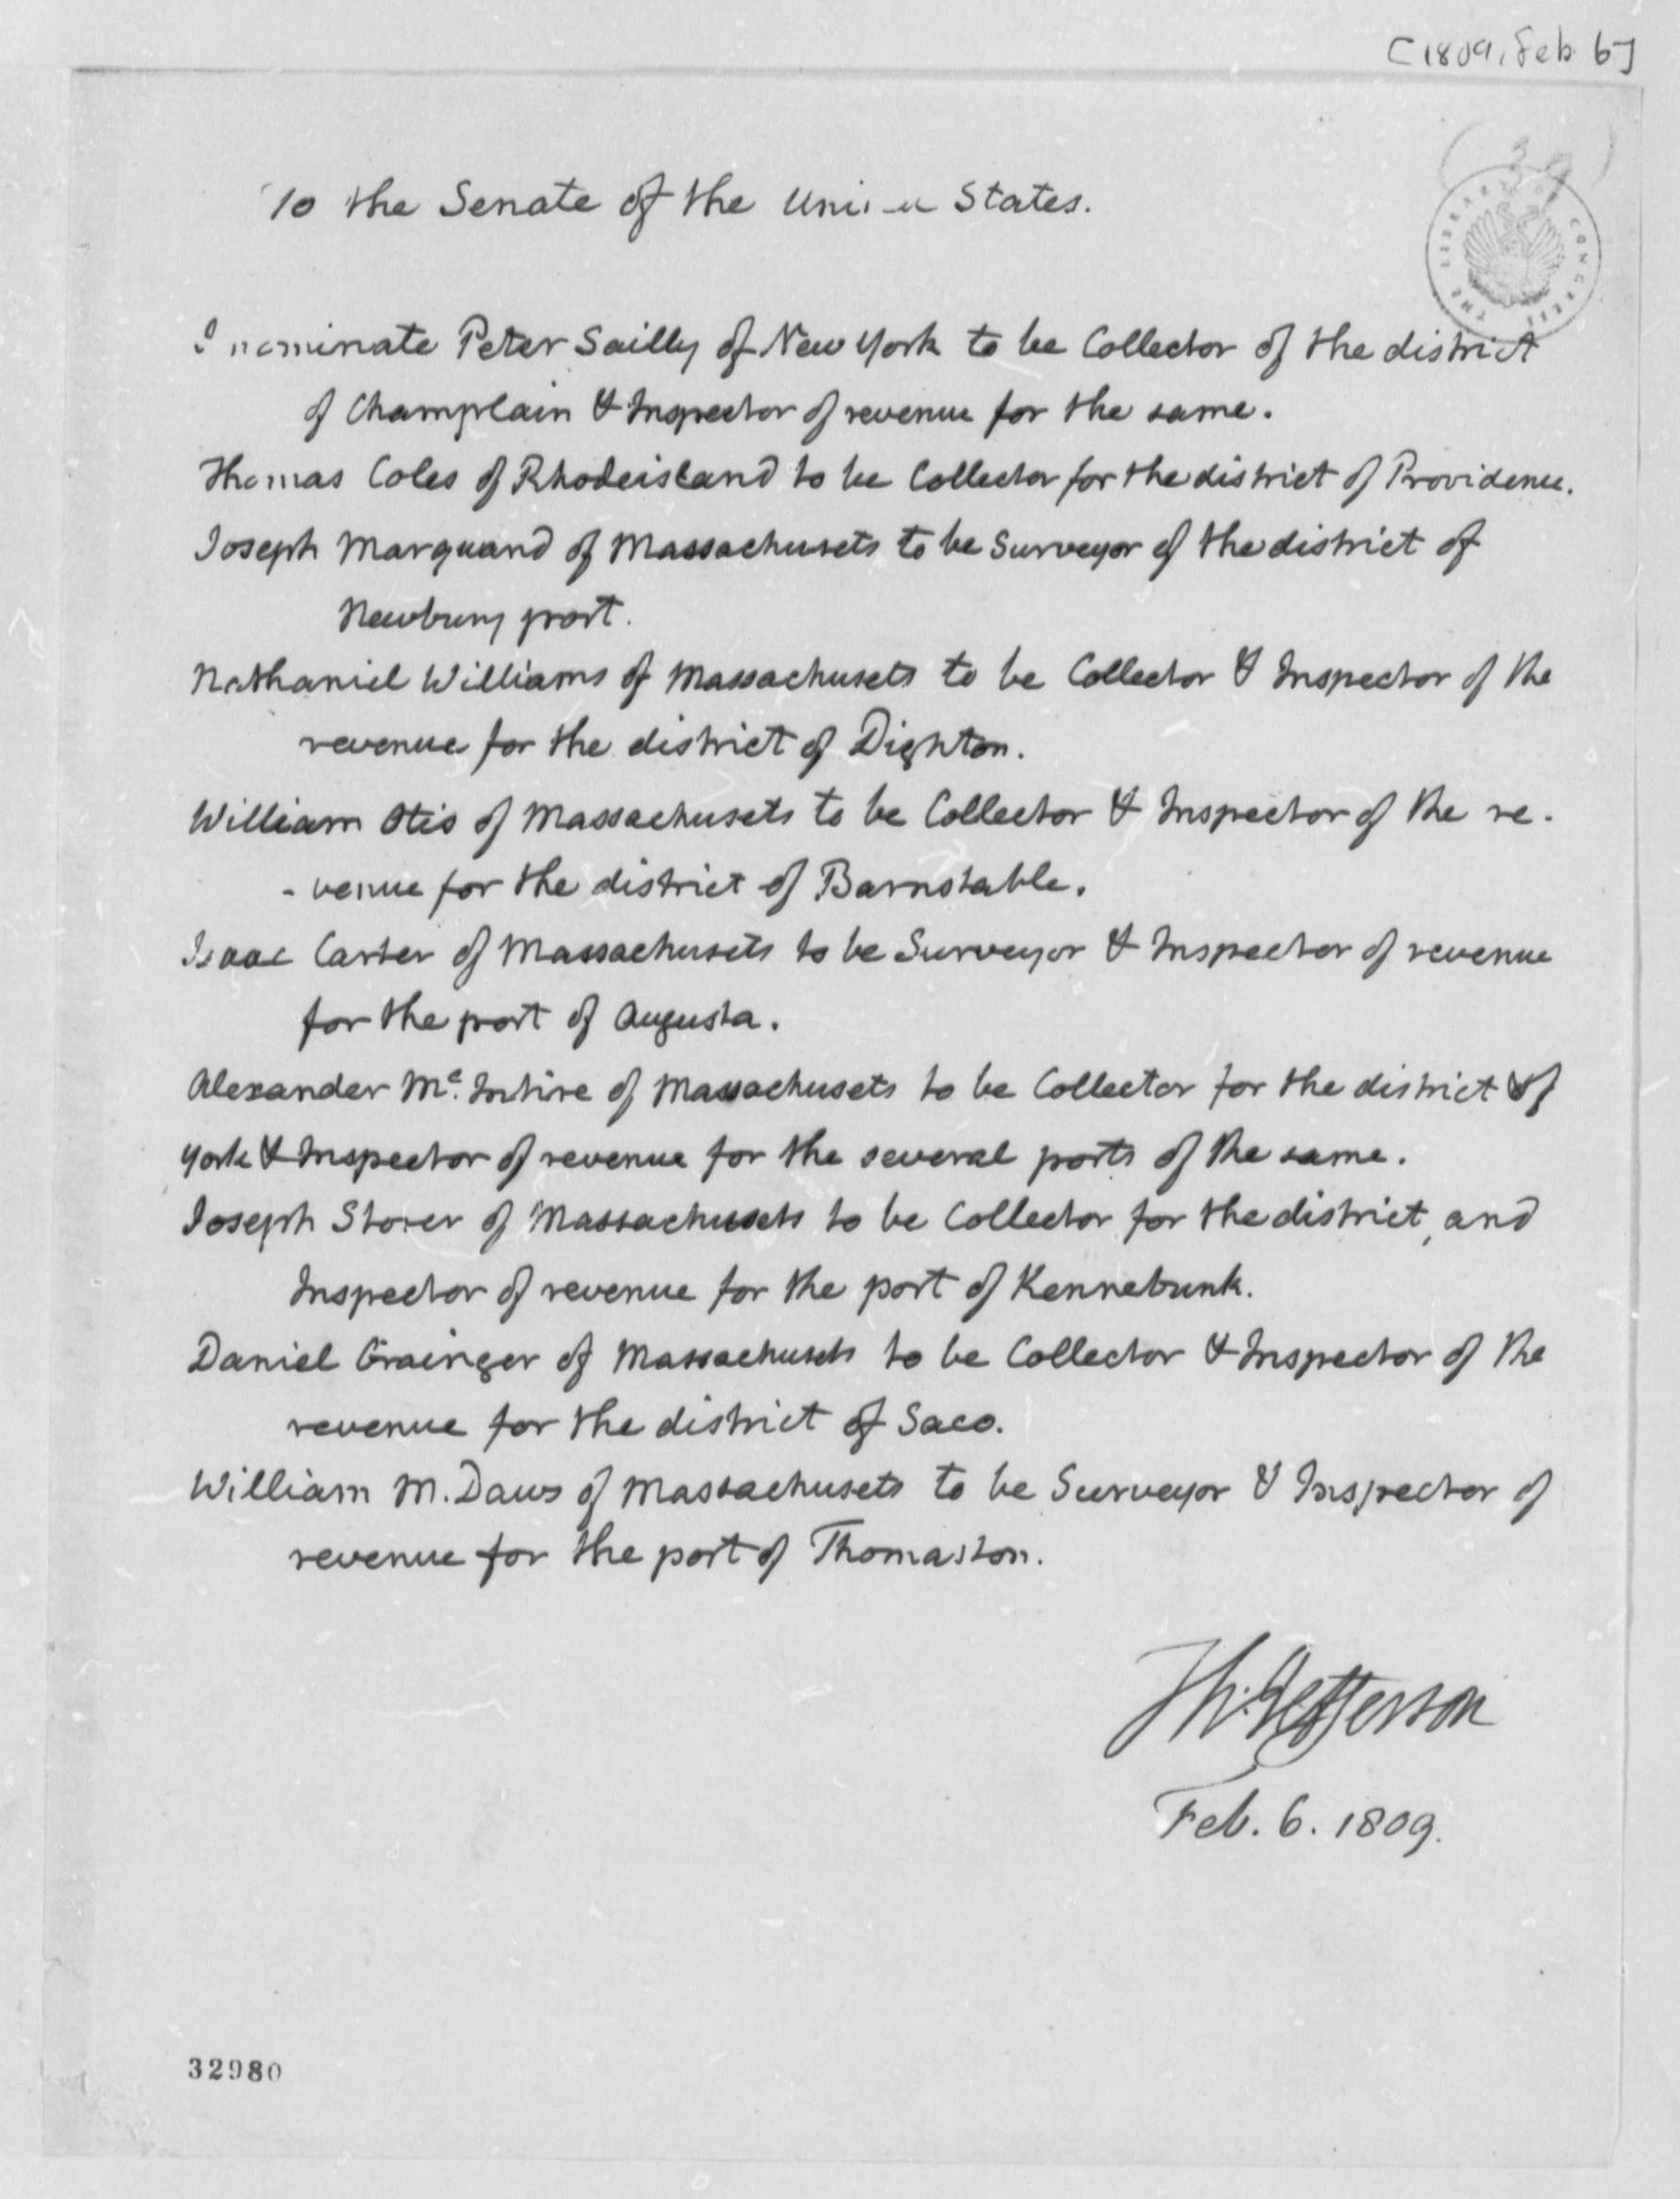 [1809, Feb. 6]
To the Senate of the United States.
THE LIBRARY OF CONGRESS
I nominate Peter Sailly of New York to be Collector of the district
of Champlain & Inspector of revenue for the same.
Thomas Coles of Rhodeisland to be Collector for the district of Providence.
Joseph Marquand of Massachusets to be Surveyor of the district of
Newbury port.
Nathaniel Williams of Massachusets to be Collector & Inspector of the
revenue for the district of Dighton.
William Otis of Massachusets to be Collector & Inspector of the re-
-venue for the district of Barnstable.
Isaac Carter of Massachusets to be Surveyor & Inspector of revenue
for the port of Augusta.
Alexander Mc. Intire of Massachusets to be Collector for the district of
York & Inspector of revenue for the several ports of the same.
Joseph Storer of Massachusets to be Collector for the district, and
Inspector of revenue for the port of Kennebunk.
Daniel Grainger of Massachusets to be Collector & Inspector of the
revenue for the district of Saco.
William M. Daws of Massachusets to be Surveyor & Inspector of
revenue for the port of Thomaston.
Th: Jefferson
Feb. 6. 1809.
32980